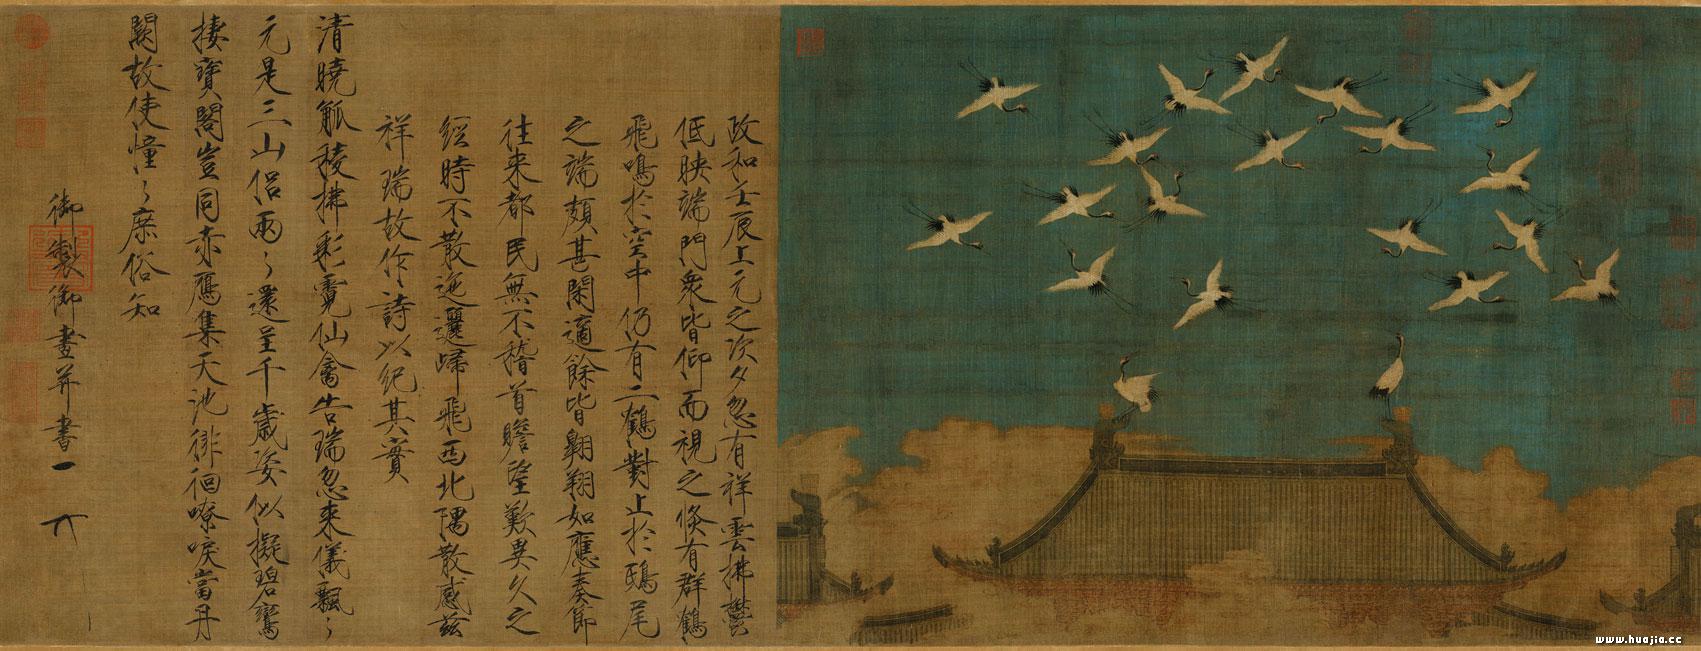 政和壬辰上元之次夕忽有祥雲拂鬱
低映端門衆皆仰而視之倏有群鶴
飛鳴於空中仍有二鶴對止於鴟尾
之端頗甚閑適餘皆翱翔如應奏節
往来都民無不稽首瞻望歎異久之
經時不散迤邐歸飛西北隅散感茲
祥瑞故作詩以紀其實
清曉觚稜拂彩霓仙禽告瑞忽来儀飄〻
元是三山侶兩〻還呈千歲姿似擬碧鸞
棲寶閣豈同赤鴈集天池徘徊嘹唳當丹
闕故使憧〻庶俗知
御製御畫并書
www.huajia.cc